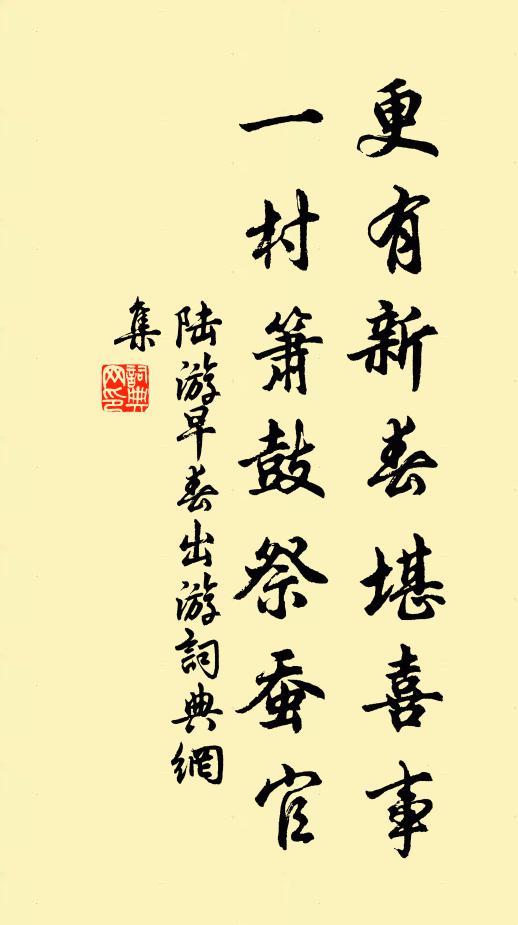 更有新春堪喜事
一村箫鼓祭蚕官
陆游早春出游詞典網
集
詞典
网印